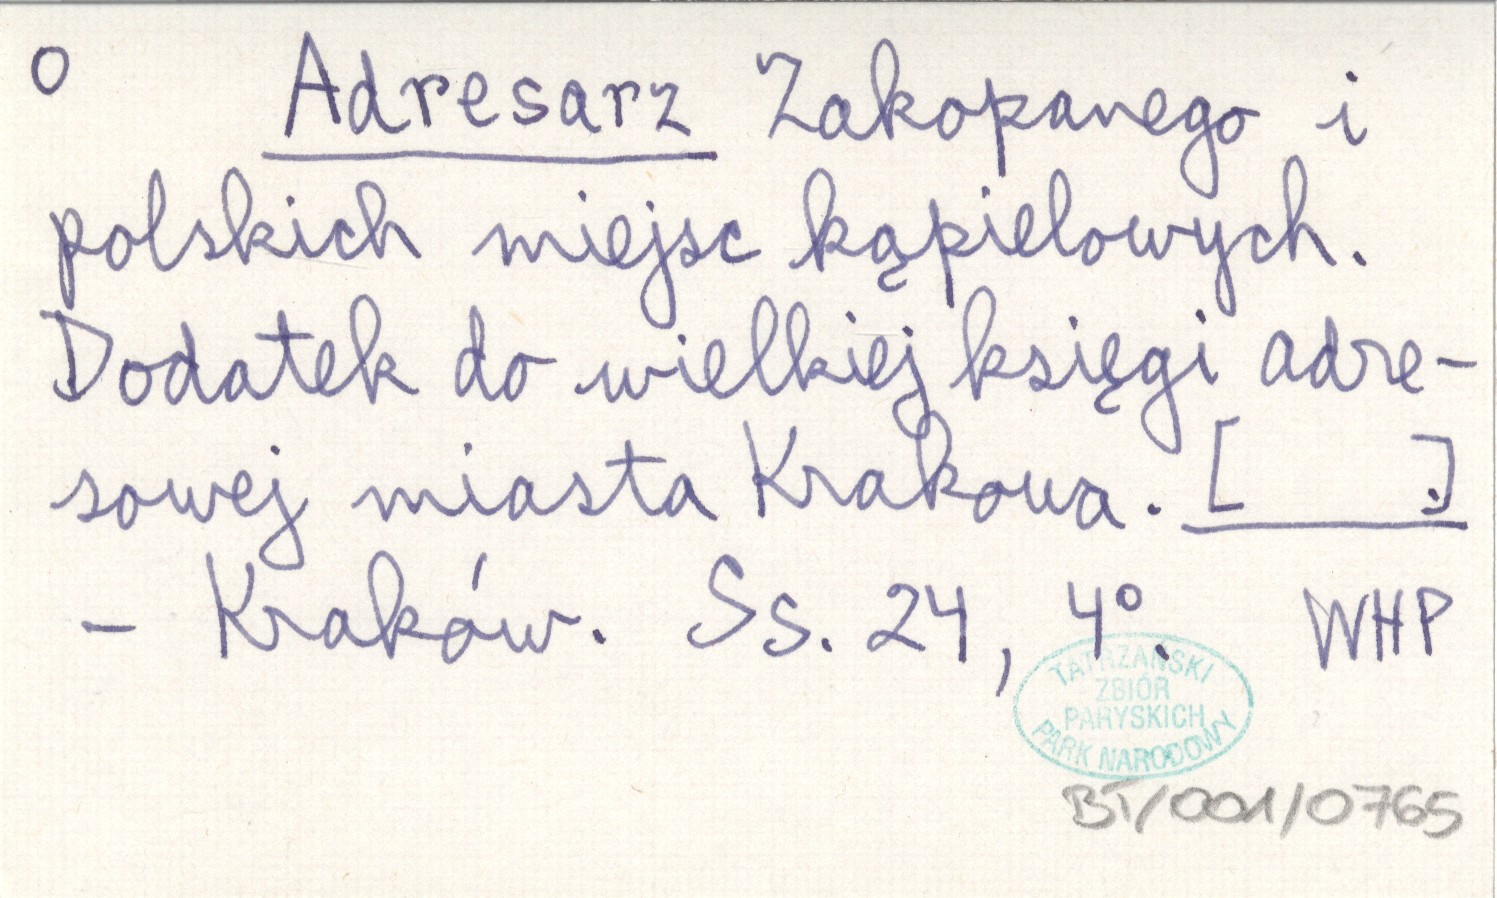 o Adresarz Zakopanego i
polskich miejsc kąpielowych.
Dodatek do wielkiej księgi adre-
sowej miasta Krakowa. [ .]
- Kraków. Ss. 24, 4°. WHP
TATRZAŃSKI
ZBIÓR
PARYSKICH
PARK NARODOWY
BT/001/0765